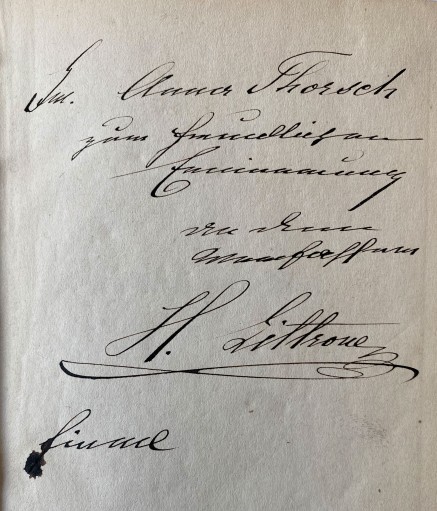 Frl. Anna Thorsch
zur freundlichen
Erinnerung
an den
Verfasser
H. Littrow
Fiume